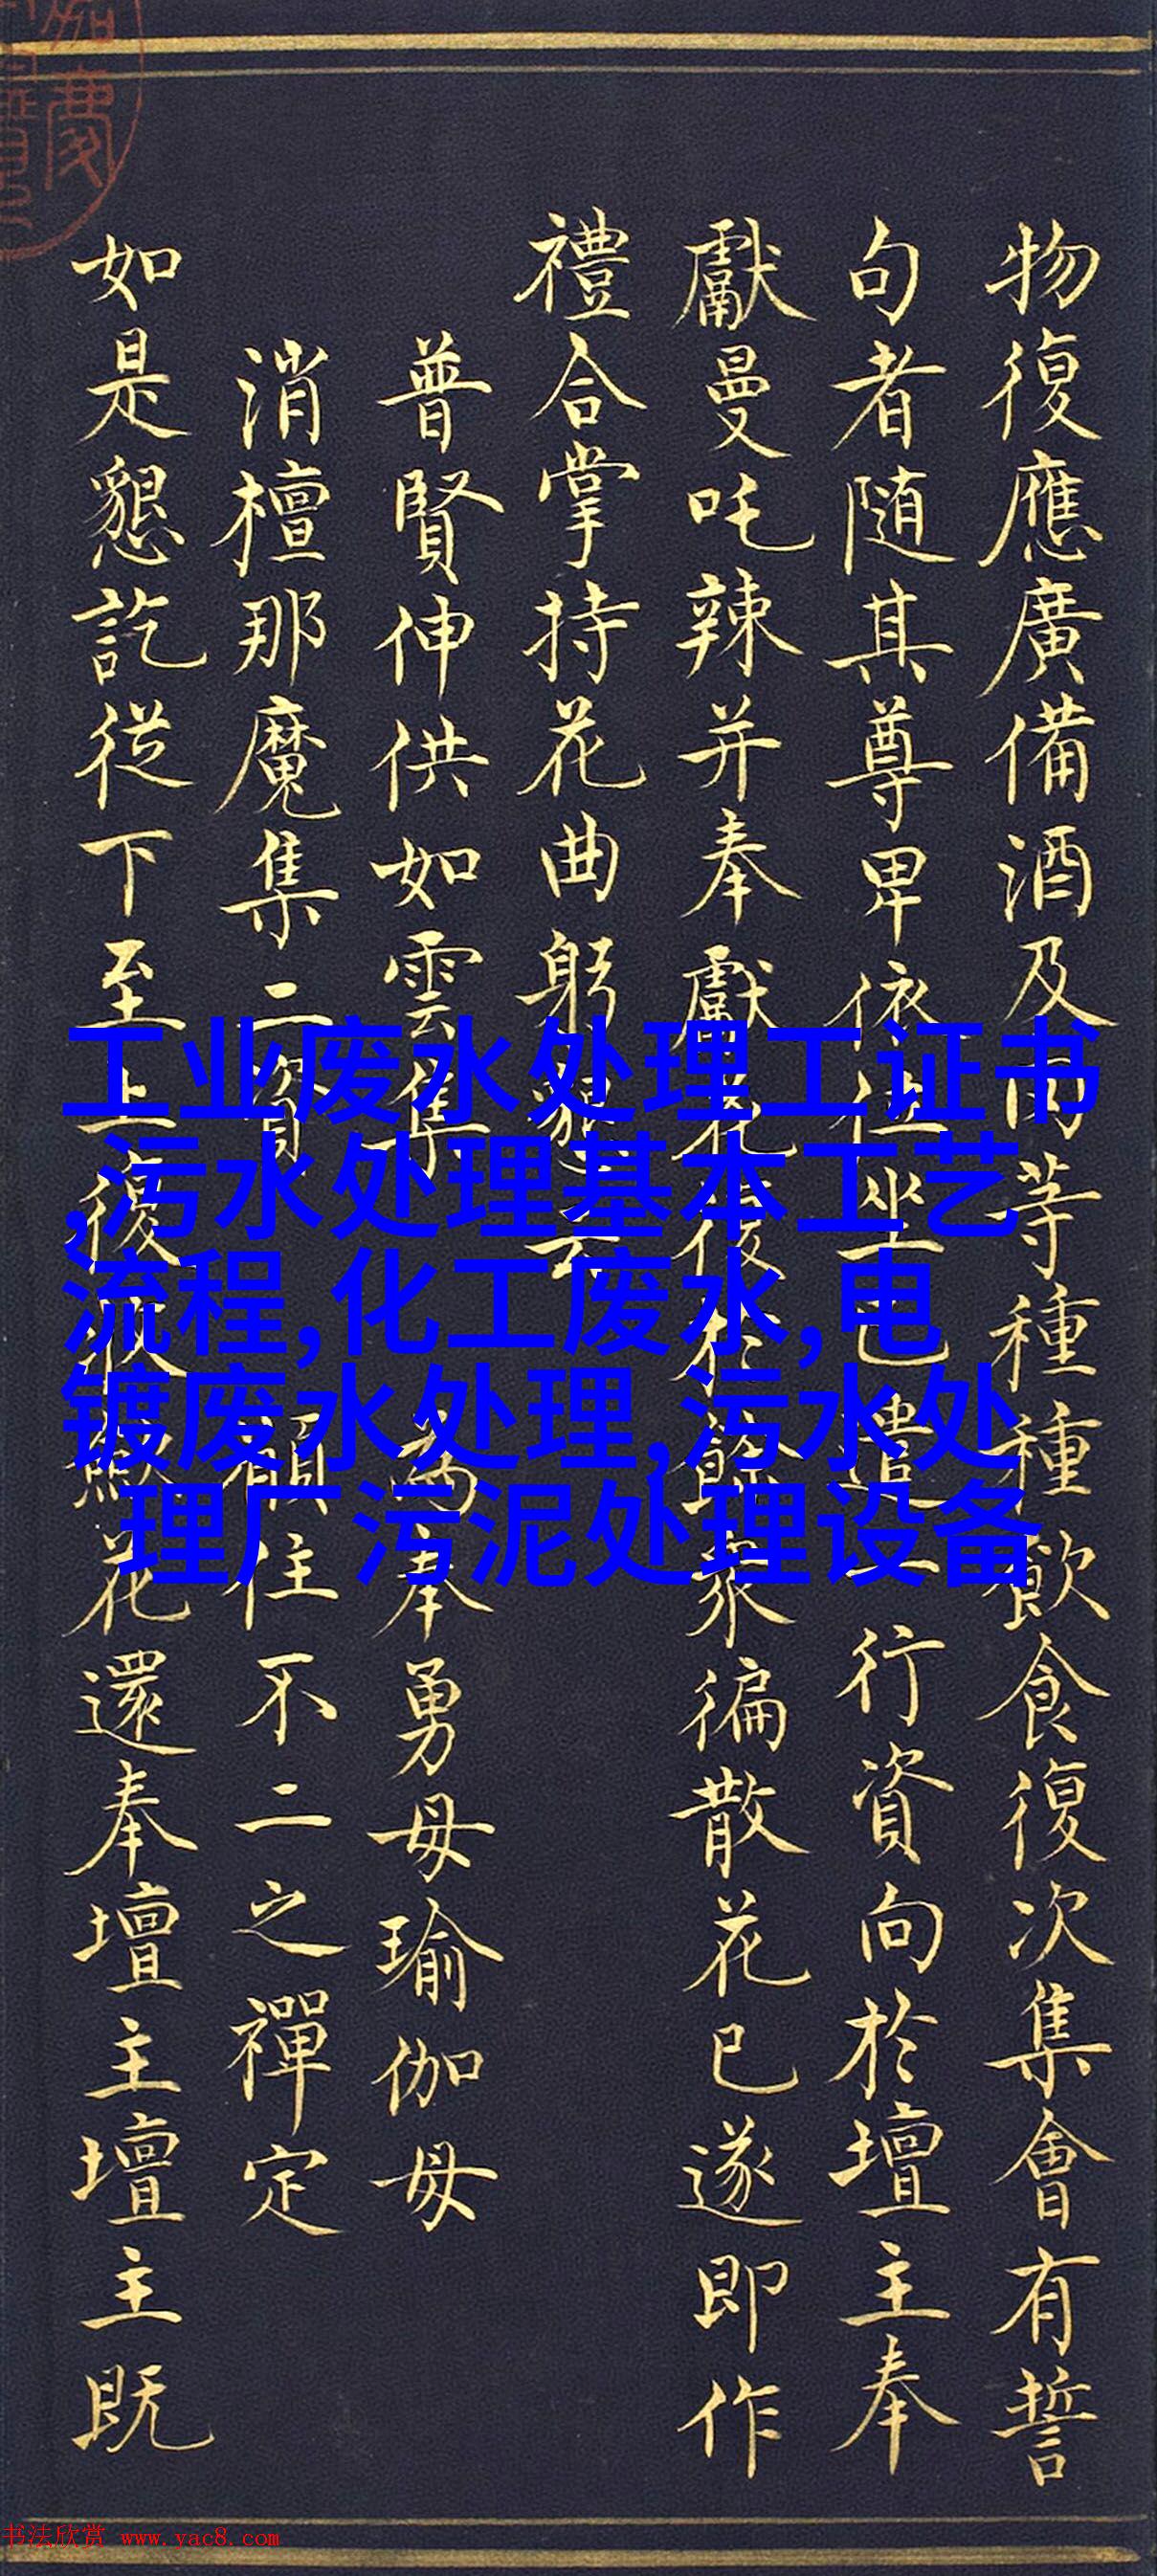 物復應廣備酒及肉等種種飲食復次集會有誓
句者随其尊卑依位坐已遣一行資向於壇主奉
獻曼吒辣并奉獻花後於餘衆徧散花已遂即作
禮合掌持花曲躬
普賢伸供如雲集 奉勇母瑜伽母
消檀那魔集二資 願住不二之禪定
如是懇訖從下至上復 獻花還奉壇主壇主既
工业废水处理工证书
,污水处理基本工艺
流程,化工废水,电
镀废水处理,污水处
理厂污泥处理设备
书法欣赏 www.yac8.com